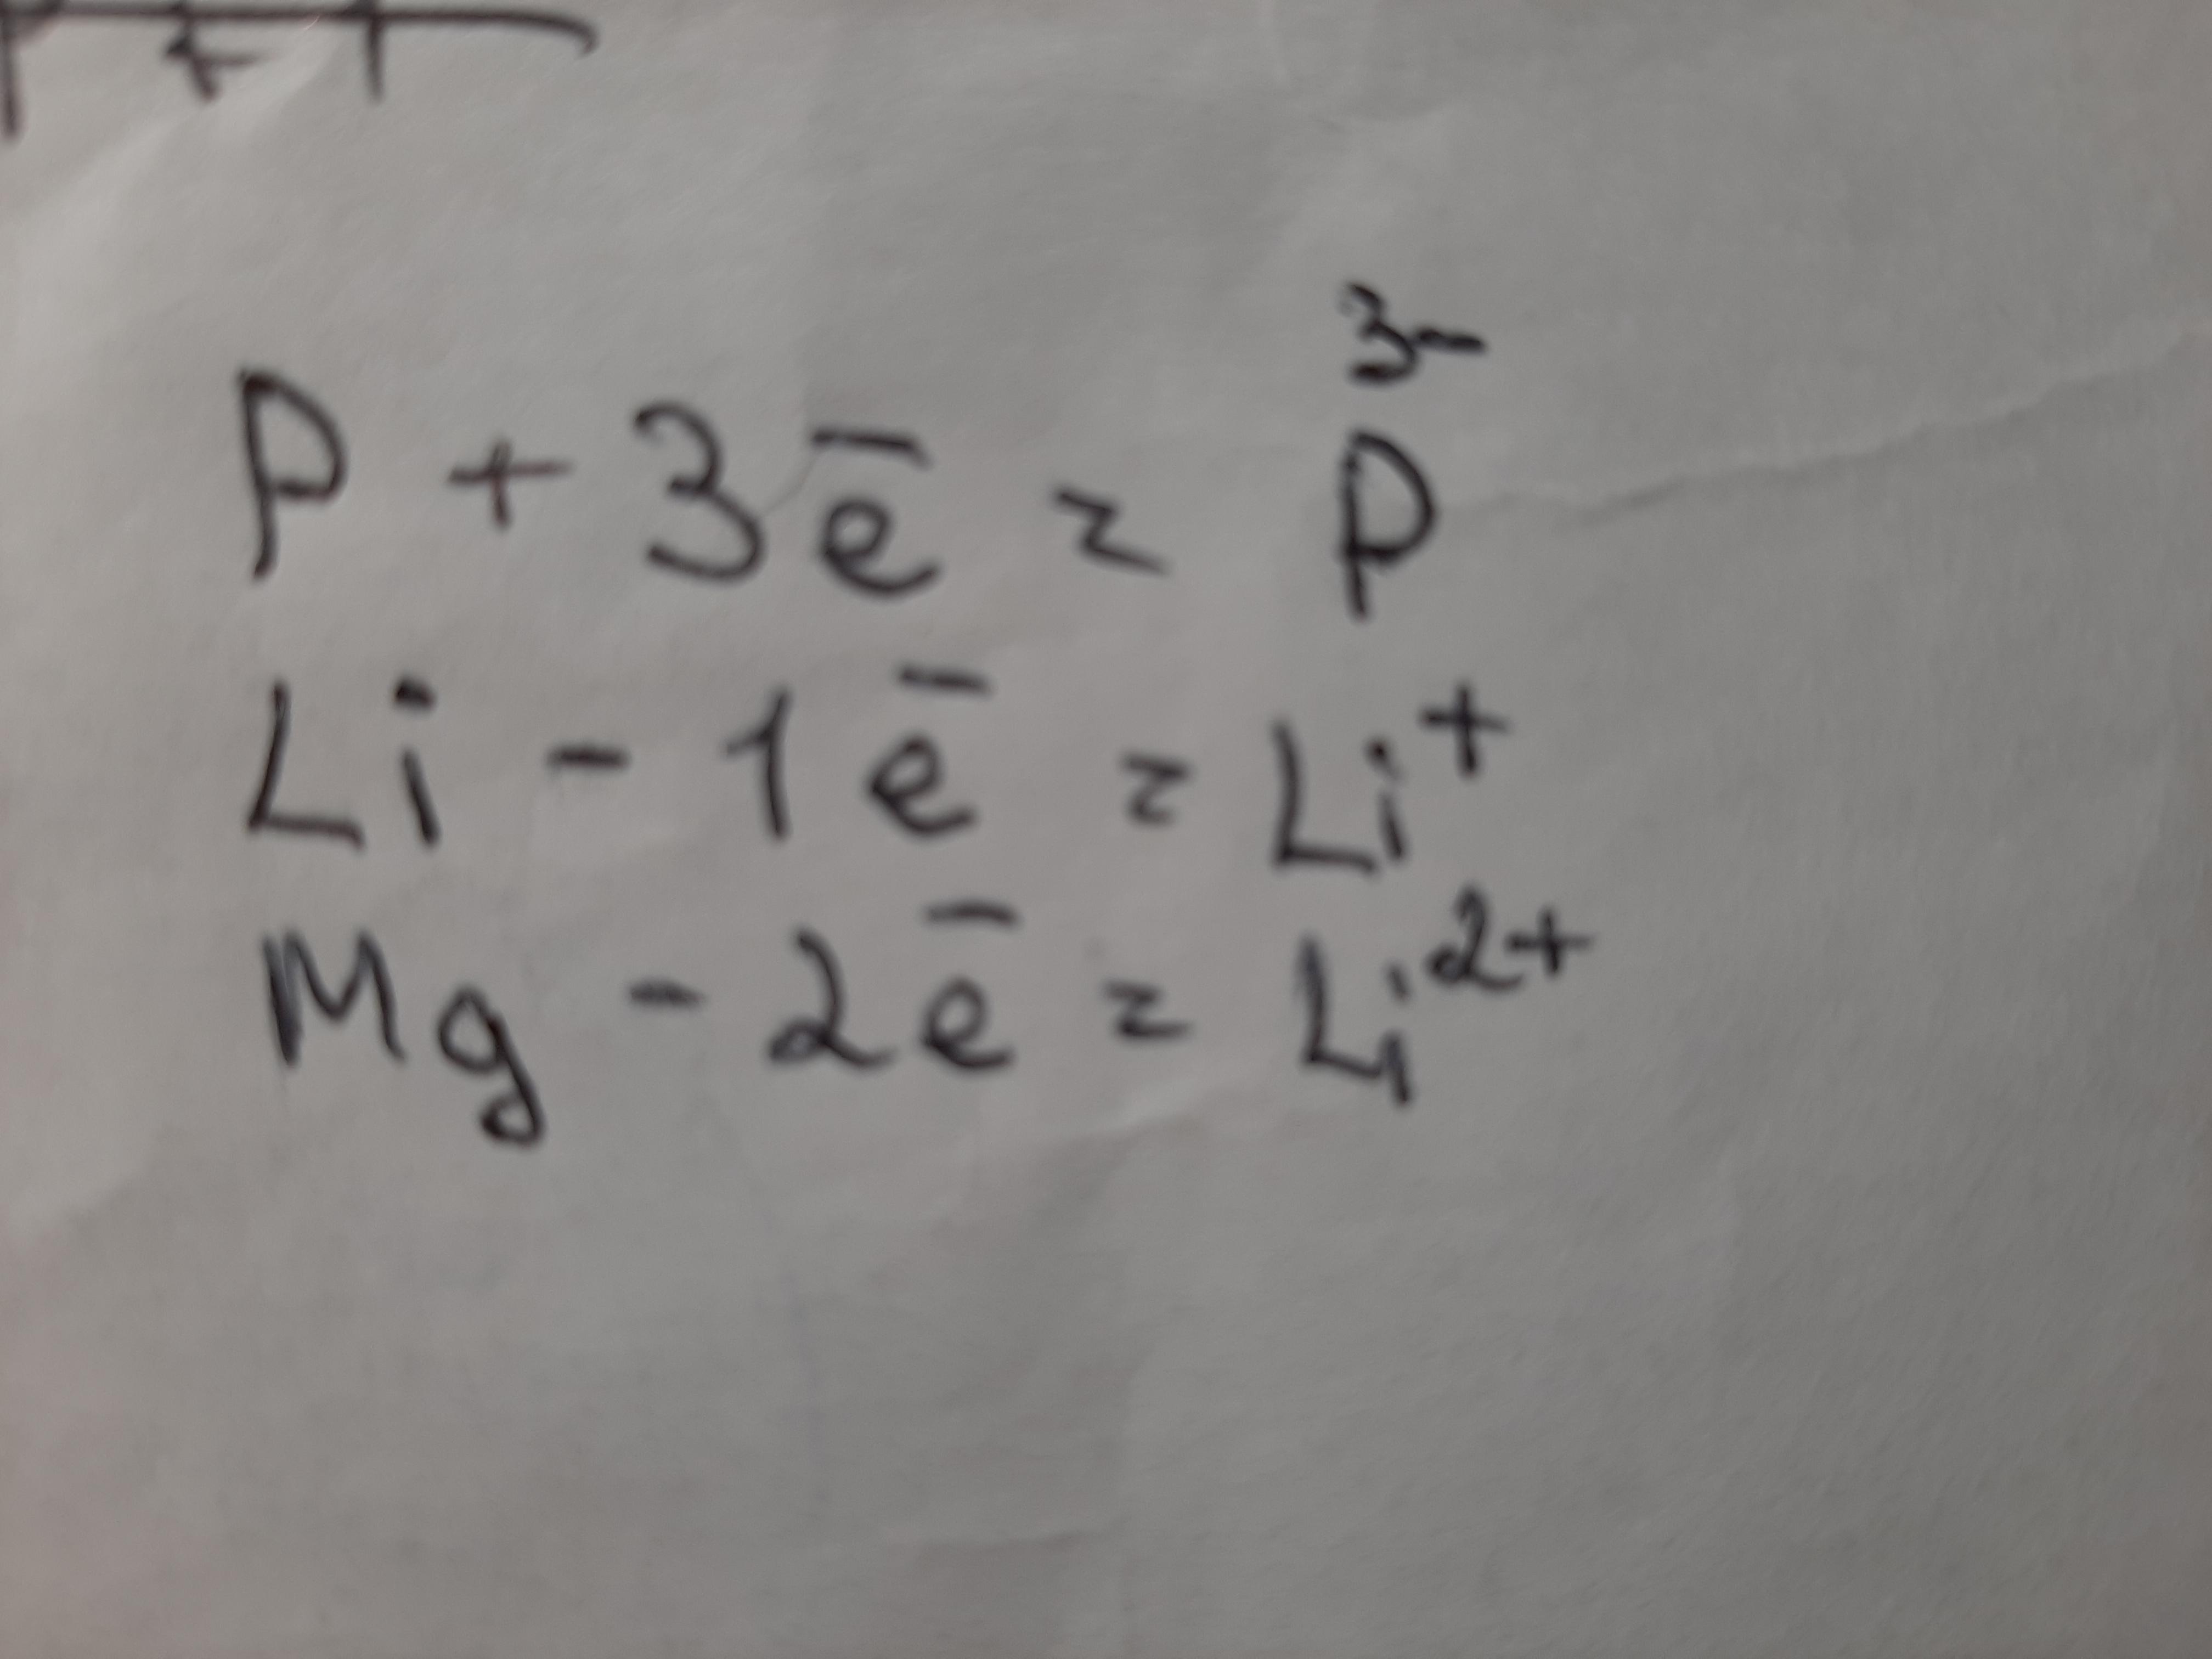 P + 3e̅ = P³⁻
Li - 1e̅ = Li⁺
Mg - 2e̅ = Li²⁺